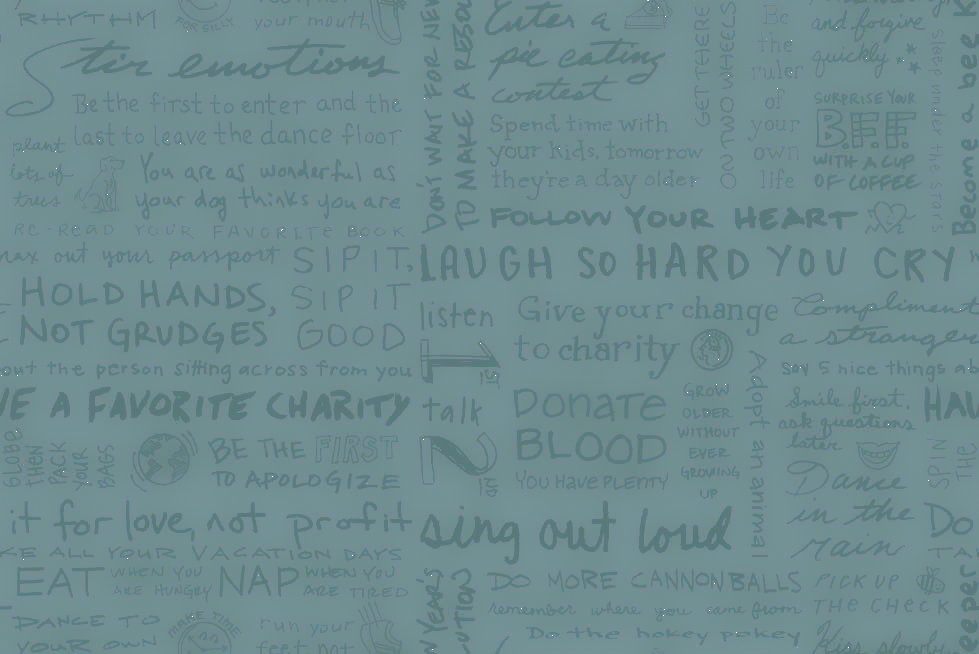 RHYTHM
FOR SILLY
your mouth
Stir emotions
Be the first to enter and the
last to leave the dance floor
plant
lots of
trees
You are as wonderful as
your dog thinks you are
RE-READ YOUR FAVORITE BOOK
max out your passport
SIP IT,
SIP IT
GOOD
HOLD HANDS,
NOT GRUDGES
out the person sitting across from you
VE A FAVORITE CHARITY
GLOBE
THEN
PACK
YOUR
BAGS
BE THE FIRST
TO APOLOGIZE
it for love, not profit
KE ALL YOUR VACATION DAYS
EAT WHEN YOU
ARE HUNGRY
NAP WHEN YOU
ARE TIRED
DANCE TO
YOUR OWN
MAKE TIME
run your
feet not
DON'T WAIT FOR NEW
TO MAKE A RESOL
Enter a
pie eating
contest
Spend time with
your kids, tomorrow
they're a day older
GET THERE
ON TWO WHEELS
Be
the
ruler
of
your
own
life
and forgive
quickly
SURPRISE YOUR
B.F.F.
WITH A CUP
OF COFFEE
sleep under the stars
Become a bee k
FOLLOW YOUR HEART
LAUGH SO HARD YOU CRY
listen
1ST
talk
2ND
Give your change
to charity
Donate
BLOOD
YOU HAVE PLENTY
GROW
OLDER
WITHOUT
EVER
GROWING
UP
Adopt an animal
Compliment
a stranger
say 5 nice things ab
Smile first,
ask questions
later
HAN
SPIN
THE
Dance
in the
rain
DO
TA
sing out loud
W YEAR'S
LUTION?
DO MORE CANNONBALLS
remember where you came from
Do the hokey pokey
PICK UP
THE CHECK
Kiss slowly
eeper